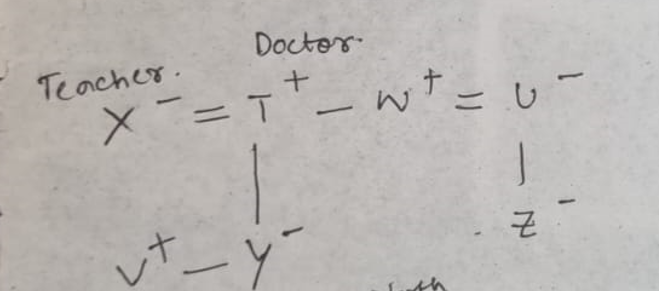 Doctor.
Teacher.
X⁻ = T⁺ – W⁺ = U⁻
|          |
Z⁻
V⁺ – Y⁻